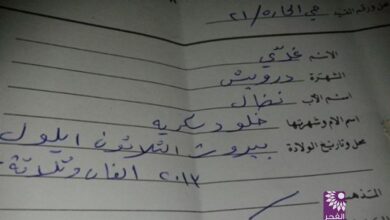 محل ورقم القيد حي الحارة/٢١
الاسم غدي
الشهرة درويش
اسم الأب نضال
اسم الأم وشهرتها خلود سكريه
محل وتاريخ الولادة بيروت الثلاثون ايلول
٢٠١٣ الفان وثلاثة
المذهب
الفجر